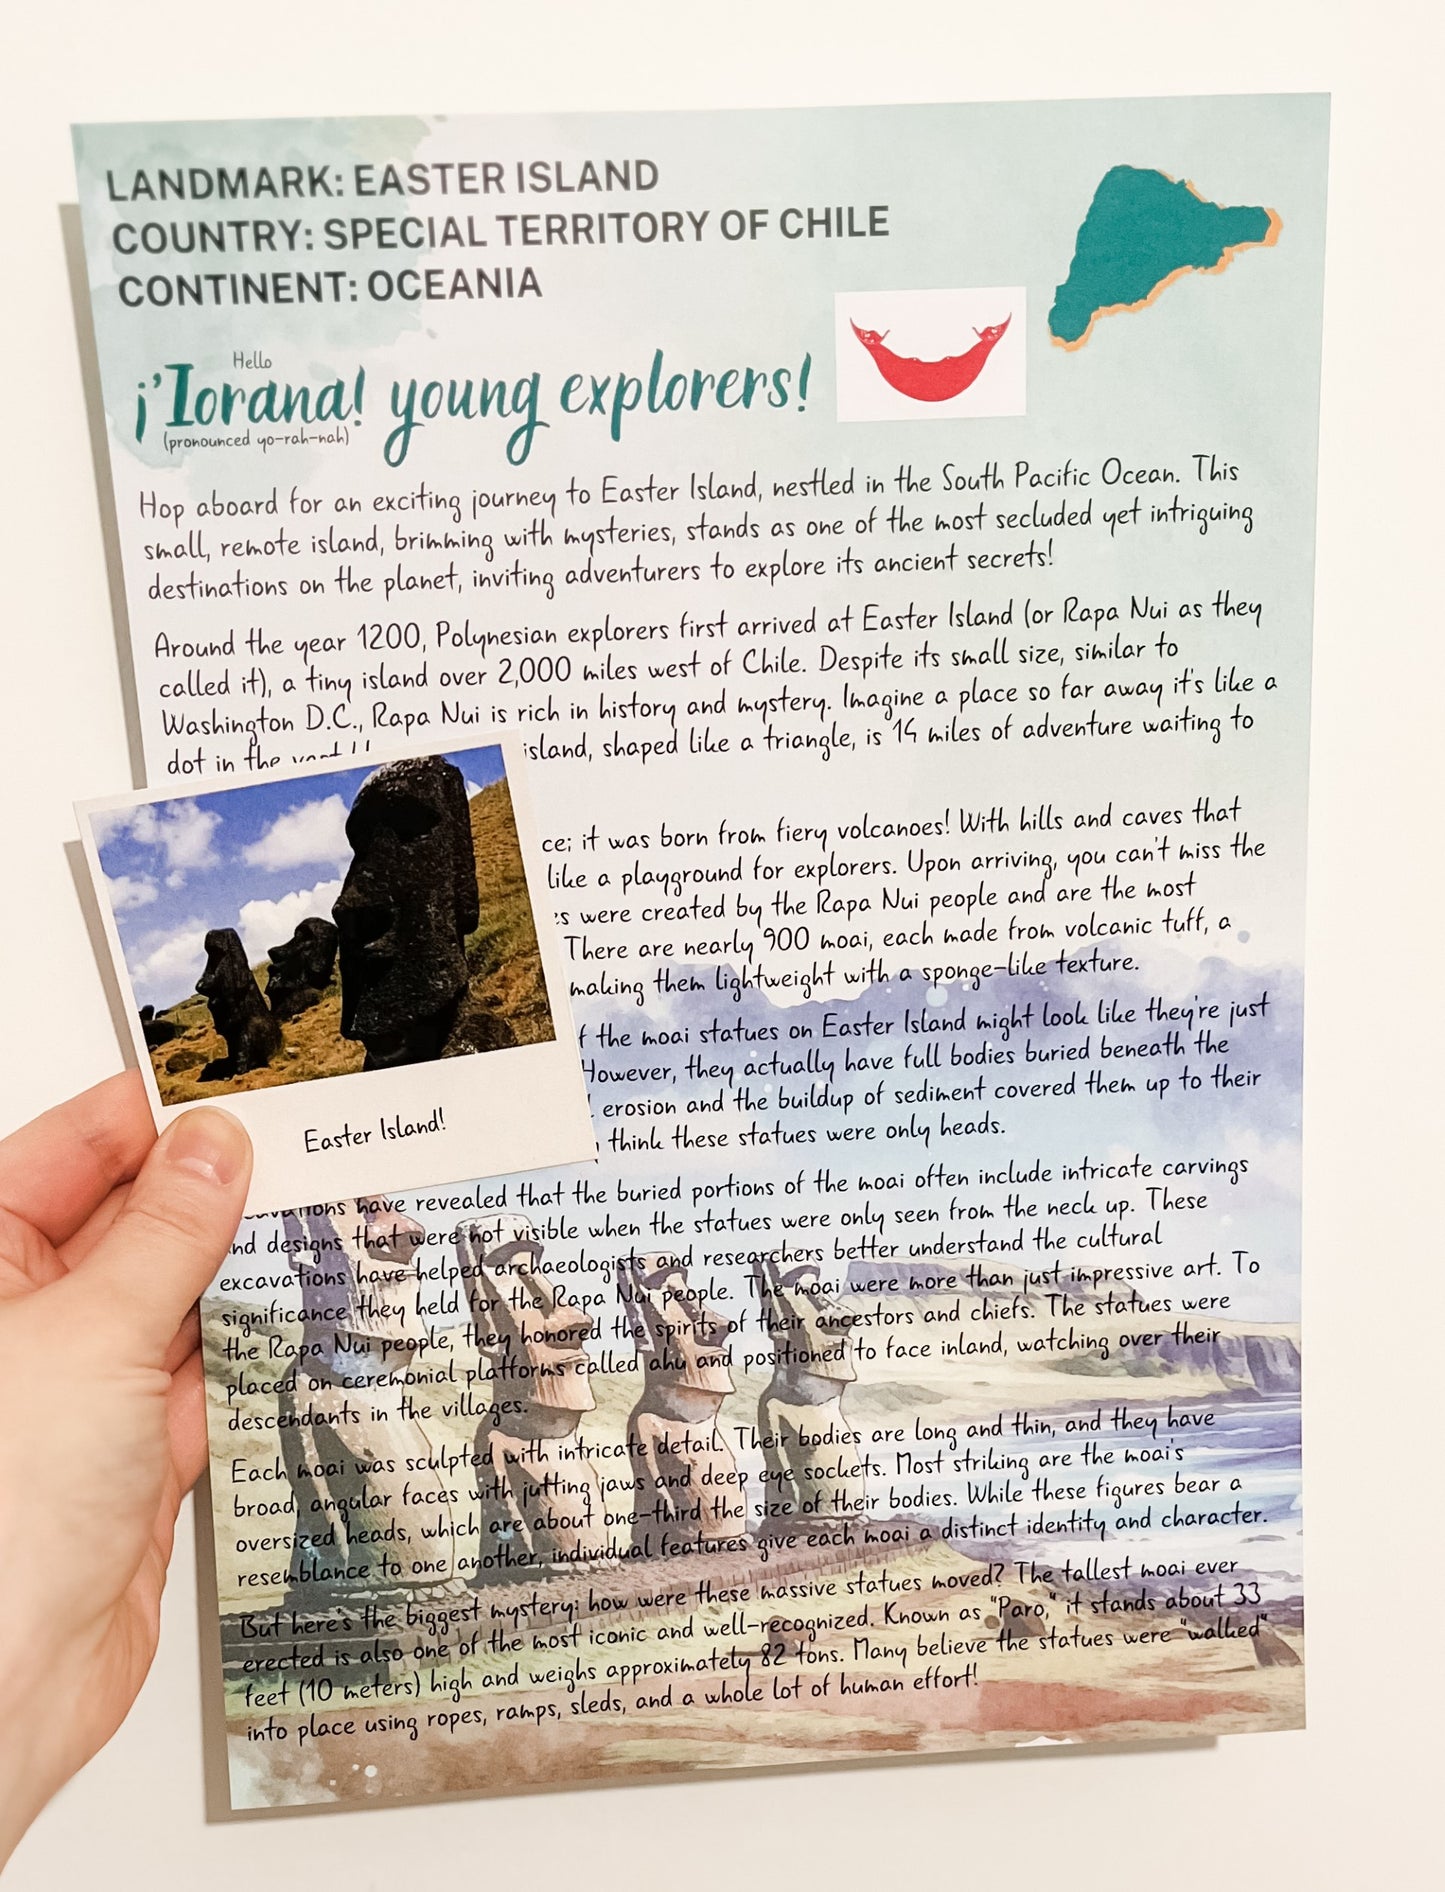 LANDMARK: EASTER ISLAND
COUNTRY: SPECIAL TERRITORY OF CHILE
CONTINENT: OCEANIA
Hello
¡'Iorana! young explorers!
(pronounced yo-rah-nah)
Hop aboard for an exciting journey to Easter Island, nestled in the South Pacific Ocean. This
small, remote island, brimming with mysteries, stands as one of the most secluded yet intriguing
destinations on the planet, inviting adventurers to explore its ancient secrets!
Around the year 1200, Polynesian explorers first arrived at Easter Island (or Rapa Nui as they
called it), a tiny island over 2,000 miles west of Chile. Despite its small size, similar to
Washington D.C., Rapa Nui is rich in history and mystery. Imagine a place so far away it's like a
dot in the island, shaped like a triangle, is 14 miles of adventure waiting to
it was born from fiery volcanoes! With hills and caves that
like a playground for explorers. Upon arriving, you can't miss the
were created by the Rapa Nui people and are the most
There are nearly 900 moai, each made from volcanic tuff, a
making them lightweight with a sponge-like texture.
the moai statues on Easter Island might look like they're just
However, they actually have full bodies buried beneath the
erosion and the buildup of sediment covered them up to their
think these statues were only heads.
Easter Island!
have revealed that the buried portions of the moai often include intricate carvings
and designs that were not visible when the statues were only seen from the neck up. These
excavations have helped archaeologists and researchers better understand the cultural
significance they held for the Rapa Nui people. The moai were more than just impressive art. To
the Rapa Nui people, they honored the spirits of their ancestors and chiefs. The statues were
placed on ceremonial platforms called ahu and positioned to face inland, watching over their
descendants in the villages.
Each moai was sculpted with intricate detail. Their bodies are long and thin, and they have
broad, angular faces with jutting jaws and deep eye sockets. Most striking are the moai's
oversized heads, which are about one-third the size of their bodies. While these figures bear a
resemblance to one another, individual features give each moai a distinct identity and character.
But here's the biggest mystery: how were these massive statues moved? The tallest moai ever
erected is also one of the most iconic and well-recognized. Known as "Paro," it stands about 33
feet (10 meters) high and weighs approximately 82 tons. Many believe the statues were "walked"
into place using ropes, ramps, sleds, and a whole lot of human effort!